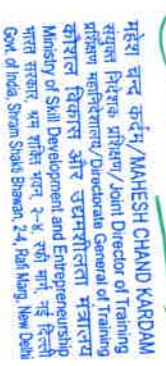 महेश चन्द कर्दम/MAHESH CHAND KARDAM
संयुक्त निदेशक प्रशिक्षण/Joint Director of Training
प्रशिक्षण महानिदेशालय/Directorate General of Training
कौशल विकास और उद्यमशीलता मंत्रालय
Ministry of Skill Development and Entrepreneurship
भारत सरकार श्रम शक्ति भवन, २-४ रफी मार्ग नई दिल्ली
Govt. of India, Shram Shakti Bhawan, 2-4, Rafi Marg, New Delhi